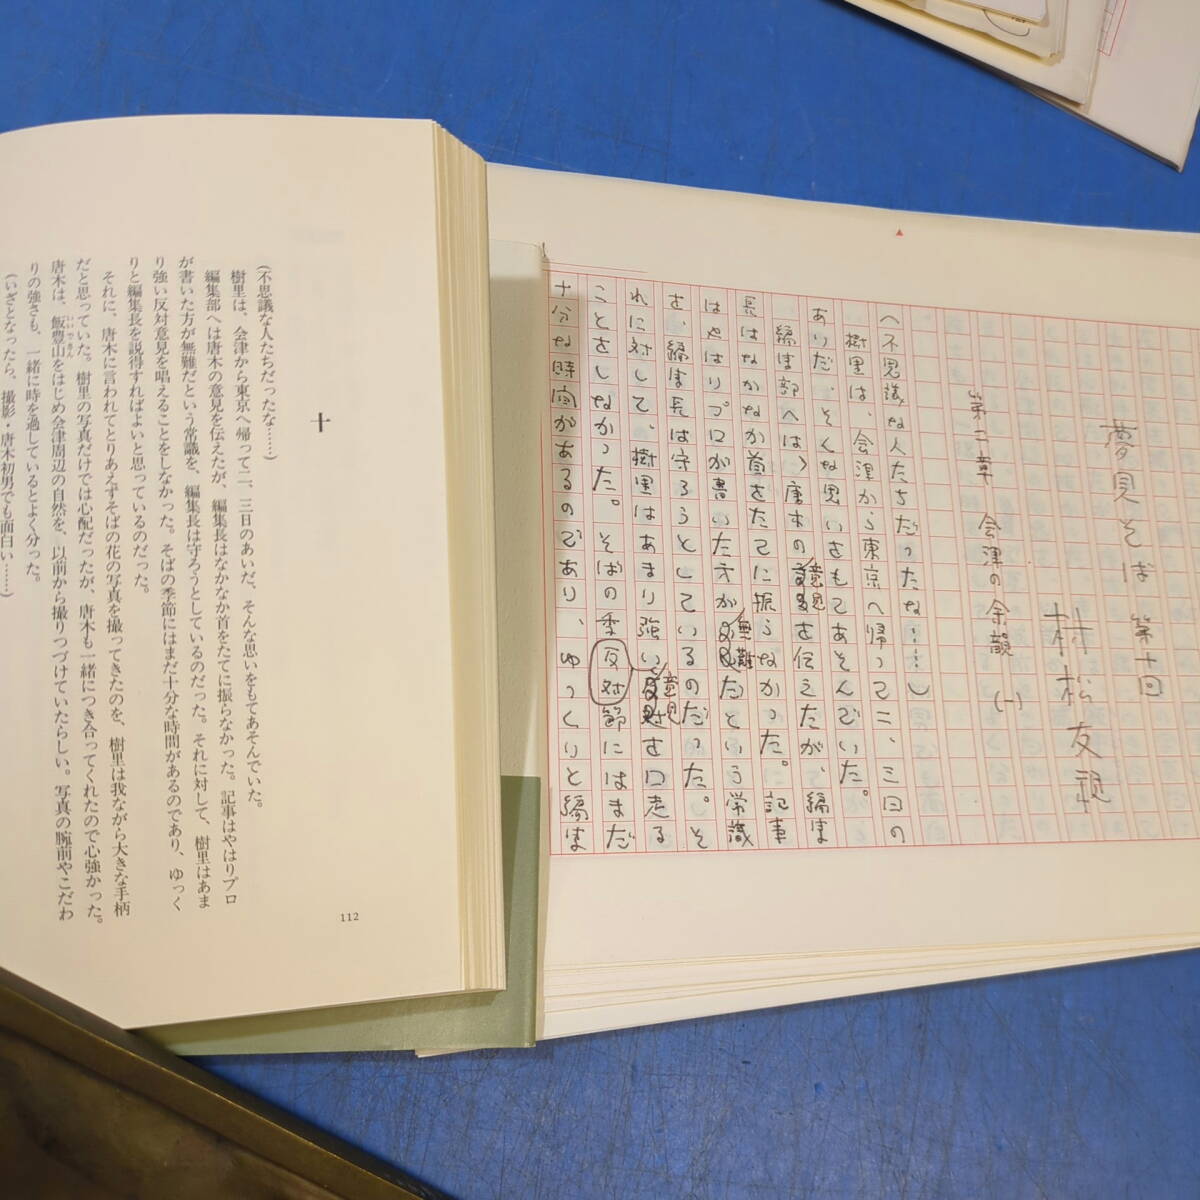 夢見そば 第十回
村松友視
第二章 会津の余韻 (一)
(不思議な人たちだったな……)
樹里は、会津から東京へ帰って二、三日の
あいだ、そんな思いをもてあそんでいた。
編集部へは、唐木の意見を伝えたが、編集
長はなかなか首をたてに振らなかった。記事
はやはりプロが書いた方が無難だという常識
を、編集長は守ろうとしているのだった。そ
れに対して、樹里はあまり強い反対意見を口走る
ことをしなかった。そばの季節にはまだ
十分な時間があるのであり、ゆっくりと編集
十
(不思議な人たちだったな……)
樹里は、会津から東京へ帰って二、三日のあいだ、そんな思いをもてあそんでいた。
編集部へは唐木の意見を伝えたが、編集長はなかなか首をたてに振らなかった。記事はやはりプロ
が書いた方が無難だという常識を、編集長は守ろうとしているのだった。それに対して、樹里はあま
り強い反対意見を唱えることをしなかった。そばの季節にはまだ十分な時間があるのであり、ゆっく
りと編集長を説得すればよいと思っているのだった。
それに、唐木に言われてとりあえずそばの花の写真を撮ってきたのを、樹里は我ながら大きな手柄
だと思っていた。樹里の写真だけでは心配だったが、唐木も一緒につき合ってくれたので心強かった。
唐木は、飯豊山をはじめ会津周辺の自然を、以前から撮りつづけていたらしい。写真の腕前やこだわ
りの強さも、一緒に時を過しているとよく分った。
(いざとなったら、撮影・唐木初男でも面白い……)
112